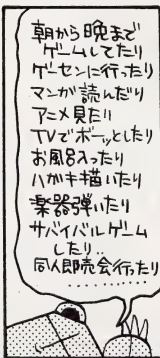 朝から晩まで
ゲームしてたり
ゲーセンに行ったり
マンガ読んだり
アニメ見たり
TVでボーッとしたり
お風呂入ったり
ハガキ描いたり
楽器弾いたり
サバイバルゲーム
したり‥
同人即売会行ったり
‥‥‥‥‥